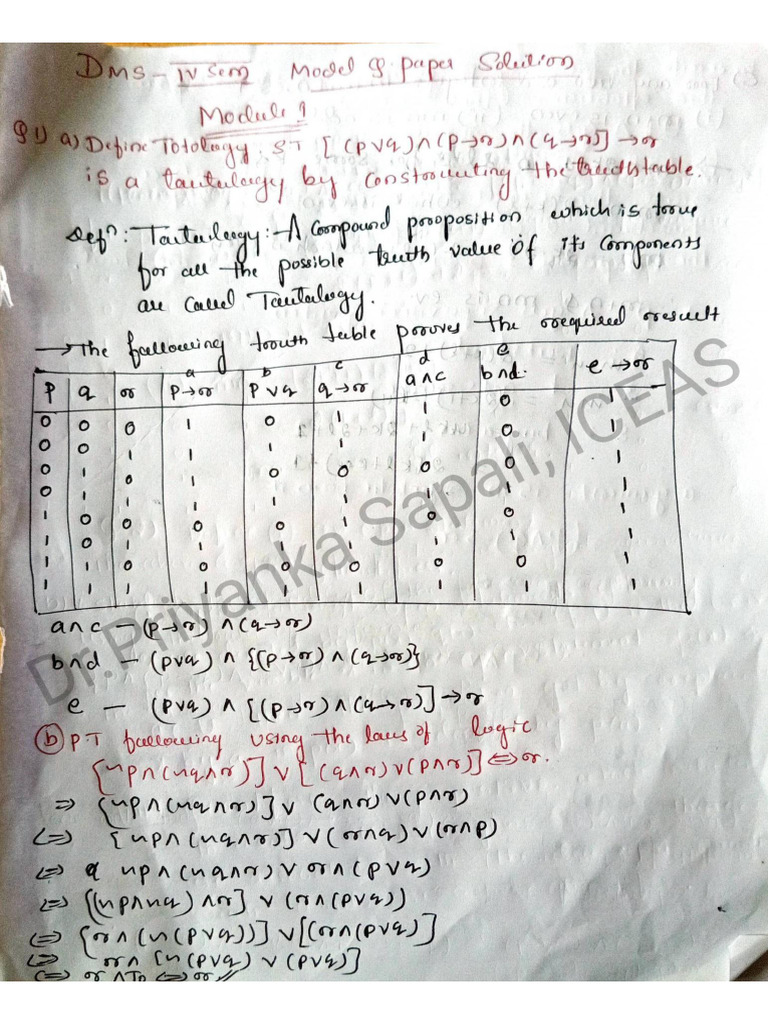 DMS - IV sem Model Q. paper Solution
Module 1
Q1) a) Define Totology. ST [(p∨q)∧(p→r)∧(q→r)]→r
is a tautology by constructing the truth table.
Defⁿ: Tautology:- A compound proposition which is true
for all the possible truth value of its components
are called Tautology.
→ The following truth table proves the required result
a b c d e
p q r p→r p∨q q→r a∧c b∧d e→r
0 0 0 1 0 1 1 0 1
0 0 1 1 0 1 1 0 1
0 1 0 1 1 0 0 0 1
0 1 1 1 1 1 1 1 1
1 0 0 0 1 0 0 1
1 0 1 1 1 1 1 1 1
1 1 0 0 1 0 0 0 1
1 1 1 1 1 1 1 1 1
a∧c - (p→r) ∧ (q→r)
b∧d - (p∨q) ∧ {(p→r) ∧ (q→r)}
e - (p∨q) ∧ [(p→r) ∧ (q→r)] → r
(b) PT following using the laws of logic
{~p∧(~q∧r)] ∨ [(q∧r)∨(p∧r)] ⇔ r.
⇒ {~p∧(~q∧r)] ∨ (q∧r)∨(p∧r)
⇔ [~p∧(~q∧r)] ∨ (r∧q)∨(r∧p)
⇔ ~p∧(~q∧r) ∨ r∧(p∨q)
⇔ {(~p∧~q)∧r] ∨ (r∧(p∨q))
⇔ {r∧(~(p∨q))] ∨ [(r∧(p∨q)]
⇔ r∧ [~(p∨q) ∨ (p∨q)]
⇔ r∧T₀ ⇔ r //
Dr.Priyanka Sapali, ICEAS